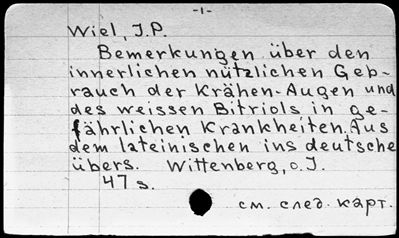 -1-
Wiel, J.P.
Bemerkungen über den
innerlichen nützlichen Geb-
rauch der Krähen-Augen und
des weissen Bitriols in ge-
fährlichen Krankheiten. Aus
dem lateinischen ins deutsche
übers. Wittenberg, o.J.
47 s.
см. след. карт.